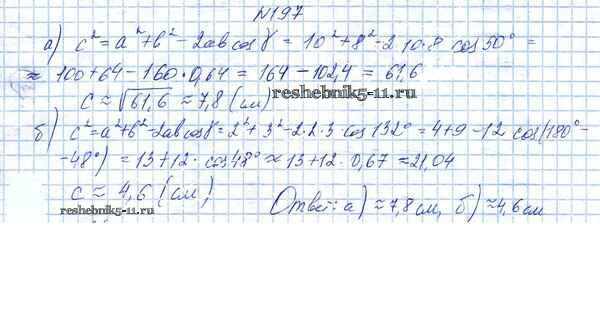 №197
а) c² = a² + b² - 2ab cos γ = 10² + 8² - 2·10·8 cos 50° =
≈ 100 + 64 - 160·0,64 = 164 - 102,4 = 61,6
c ≈ √61,6 ≈ 7,8 (см)
reshebnik5-11.ru
б) c² = a² + b² - 2ab cos γ = 2² + 3² - 2·2·3 cos 132° = 4 + 9 - 12 cos(180° -
- 48°) = 13 + 12 · cos 48° ≈ 13 + 12 · 0,67 ≈ 21,04
c ≈ 4,6 (см)
reshebnik5-11.ru
Ответ: а) ≈ 7,8 см, б) ≈ 4,6 см